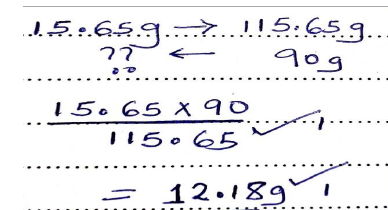 15.65g → 115.65g
?? ← 90g
15.65 × 90
115.65 ✓ 1
= 12.18g ✓ 1